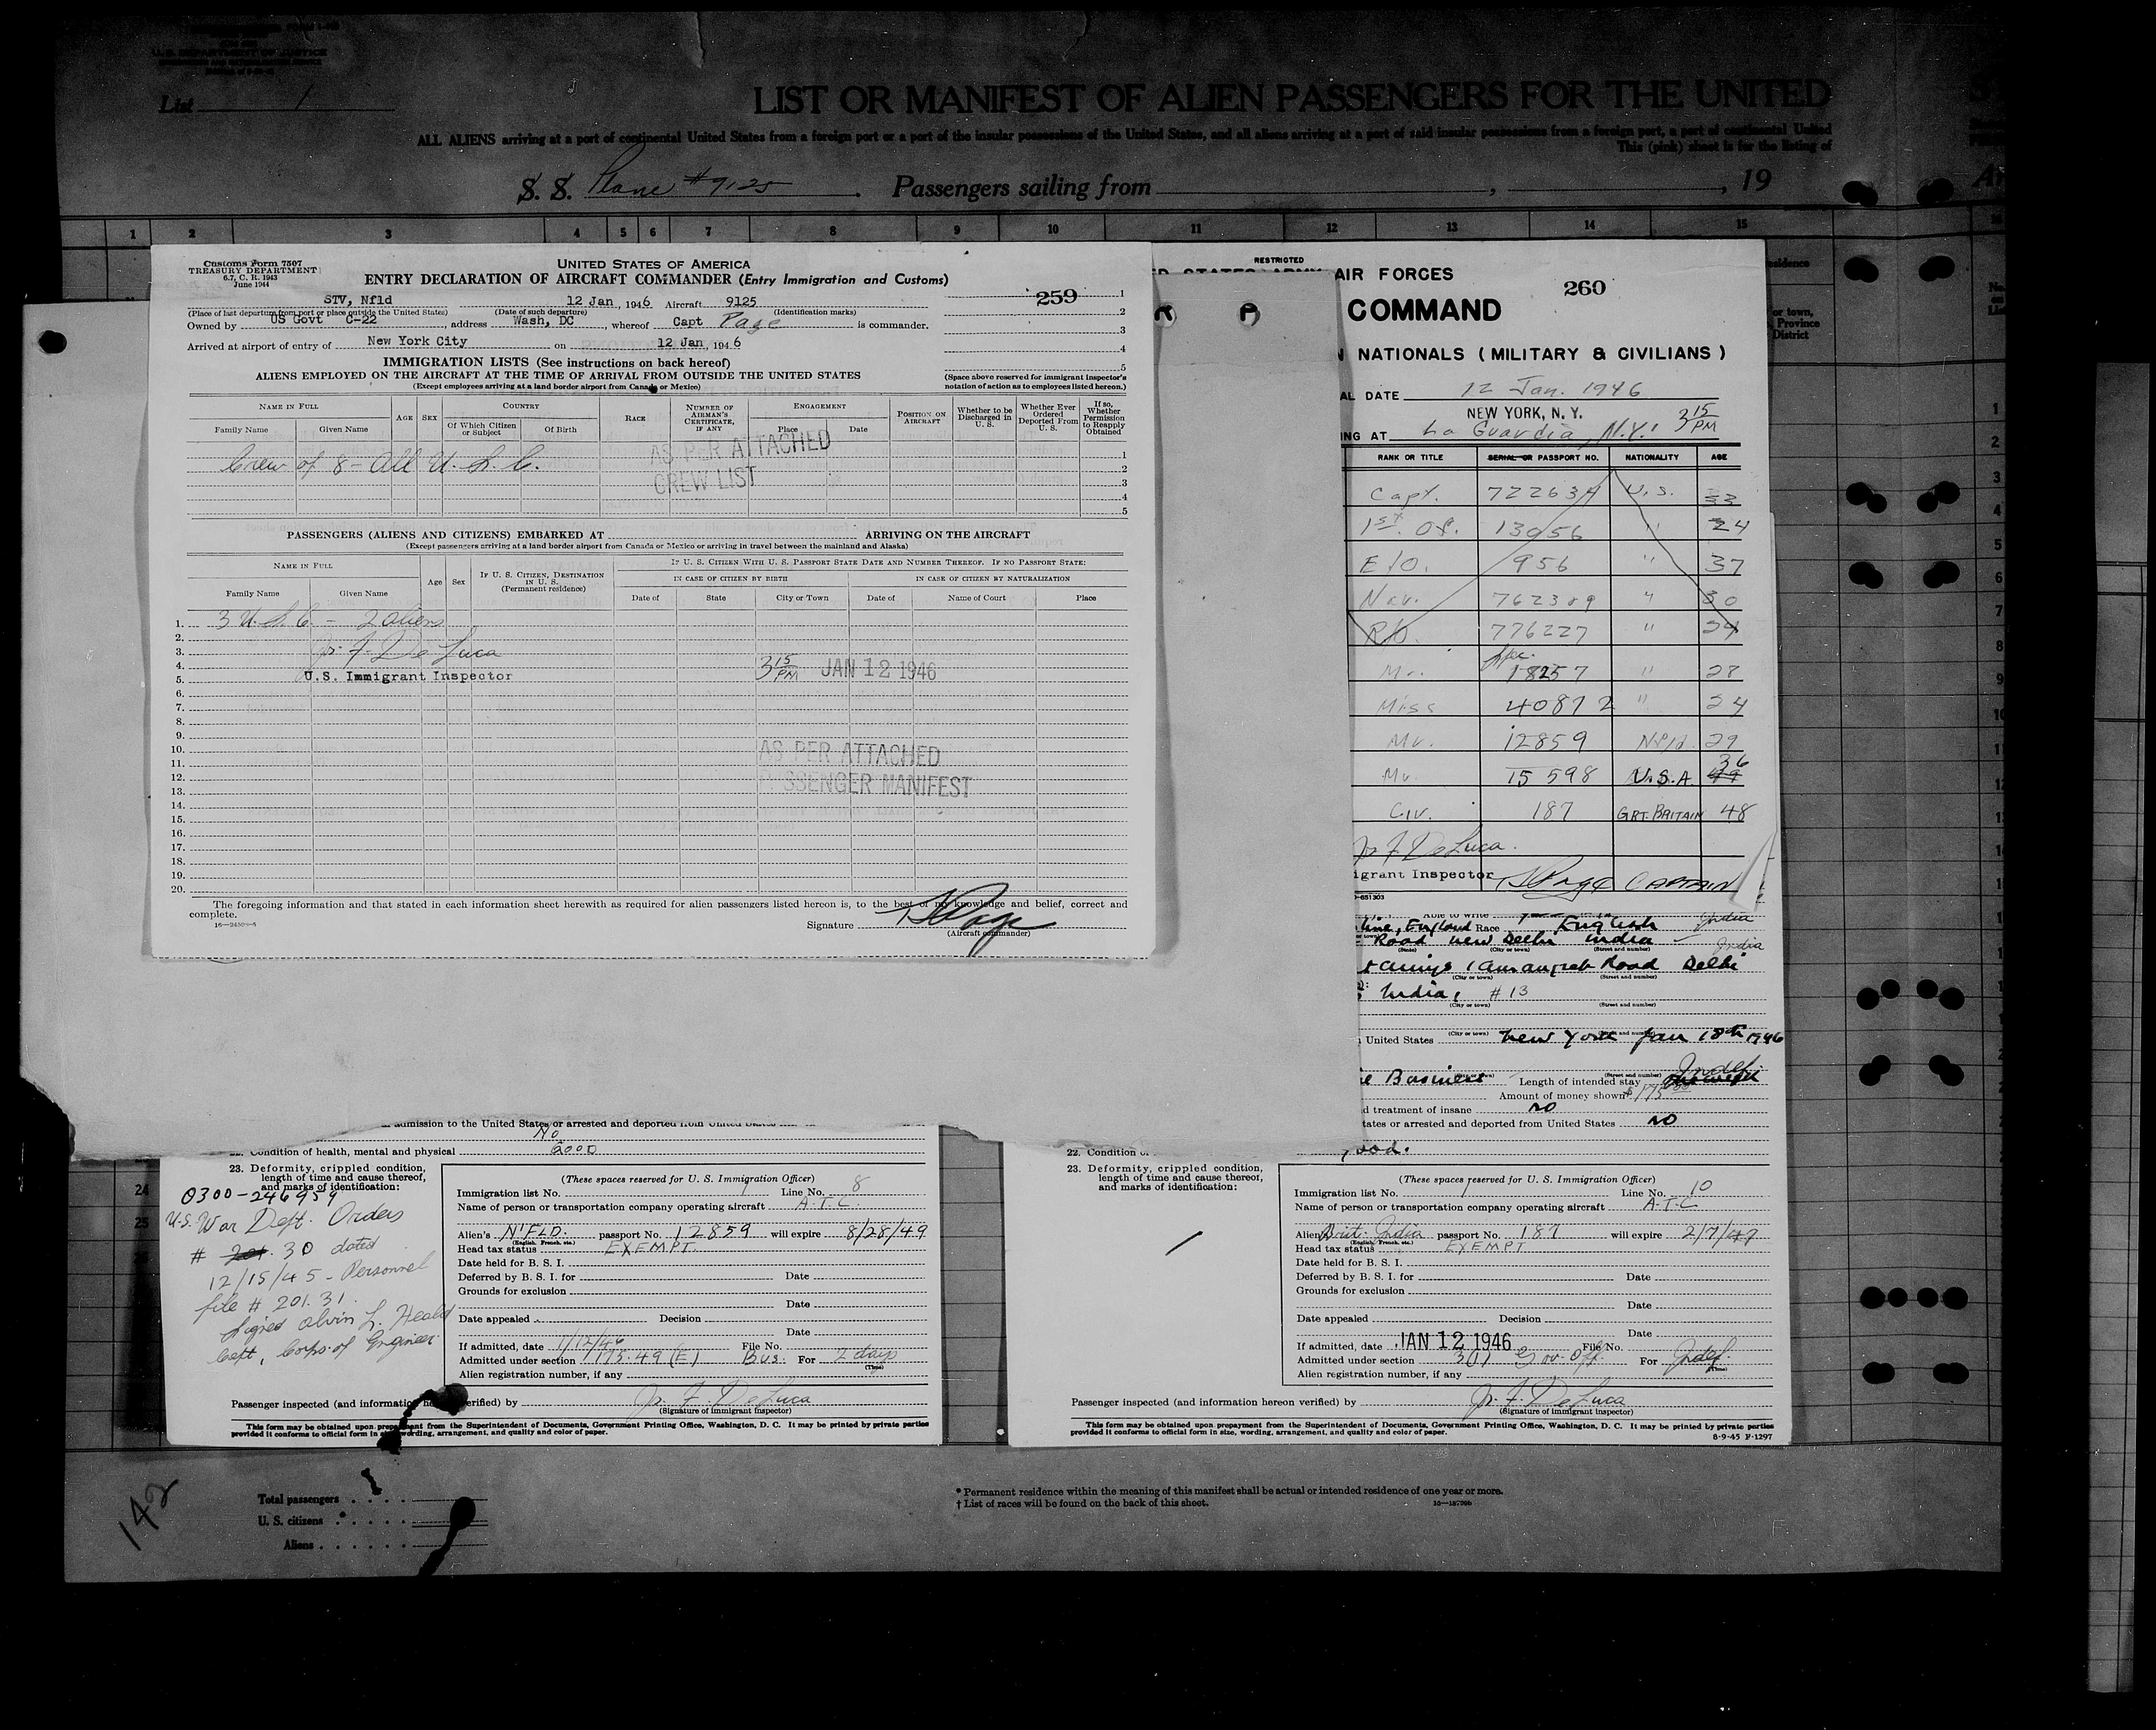 U.S. DEPARTMENT OF JUSTICE
List 1
LIST OR MANIFEST OF ALIEN PASSENGERS FOR THE UNITED
ALL ALIENS arriving at a port of continental United States from a foreign port or a port of the insular possessions of the United States, and all aliens arriving at a port of said insular possessions from a foreign port, a port of continental United
This (pink) sheet is for the listing of
S. S. Plane #9125. Passengers sailing from , , 19
1 2 3 4 5 6 7 8 9 10 11 12 13 14 15
Customs Form 7507
TREASURY DEPARTMENT
6.7, C. R. 1943
June 1944
UNITED STATES OF AMERICA
ENTRY DECLARATION OF AIRCRAFT COMMANDER (Entry Immigration and Customs)
259
STV, Nfld 12 Jan, 1946 Aircraft 9125
(Place of last departure from port or place outside the United States) (Date of such departure) (Identification marks)
Owned by US Govt C-22, address Wash, DC, whereof Capt Page is commander.
Arrived at airport of entry of New York City on 12 Jan, 1946
IMMIGRATION LISTS (See instructions on back hereof)
ALIENS EMPLOYED ON THE AIRCRAFT AT THE TIME OF ARRIVAL FROM OUTSIDE THE UNITED STATES
(Except employees arriving at a land border airport from Canada or Mexico)
1
2
3
4
5
(Space above reserved for immigrant inspector's notation of action as to employees listed hereon.)
NAME IN FULL AGE SEX COUNTRY RACE NUMBER OF AIRMAN'S CERTIFICATE, IF ANY ENGAGEMENT POSITION ON AIRCRAFT Whether to be Discharged in U. S. Whether Ever Ordered Deported From U. S. If so, Whether Permission to Reapply Obtained
Family Name Given Name Of Which Citizen or Subject Of Birth Place Date
Crew of 8 - All U. S. C.
AS PER ATTACHED
CREW LIST
1
2
3
4
5
PASSENGERS (ALIENS AND CITIZENS) EMBARKED AT ARRIVING ON THE AIRCRAFT
(Except passengers arriving at a land border airport from Canada or Mexico or arriving in travel between the mainland and Alaska)
NAME IN FULL Age Sex IF U. S. CITIZEN, DESTINATION IN U. S. (Permanent residence) IF U. S. CITIZEN WITH U. S. PASSPORT STATE DATE AND NUMBER THEREOF. IF NO PASSPORT STATE:
IN CASE OF CITIZEN BY BIRTH IN CASE OF CITIZEN BY NATURALIZATION
Family Name Given Name Date of State City or Town Date of Name of Court Place
1. 3 U.S.C. - 2 aliens
2.
3. Jr. F. De Luca
4. 3 15 PM JAN 12 1946
5. U.S. Immigrant Inspector
6.
7.
8.
9.
10. AS PER ATTACHED
11.
12. SSENGER MANIFEST
13.
14.
15.
16.
17.
18.
19.
20.
The foregoing information and that stated in each information sheet herewith as required for alien passengers listed hereon is, to the best of my knowledge and belief, correct and complete.
Signature Page
(Aircraft commander)
RESTRICTED
AIR FORCES
260
COMMAND
NATIONALS (MILITARY & CIVILIANS)
AL DATE 12 Jan. 1946
NEW YORK, N. Y. 3 15 PM
ING AT La Guardia, N.Y.
RANK OR TITLE SERIAL OR PASSPORT NO. NATIONALITY AGE
Capt. 722634 U.S. 33
1st Of. 13956 " 24
E/O. 956 " 37
Nav. 762389 " 30
R/O. 776227 " 24
Mr. 18257 " 28
Miss 40872 " 24
Mr. 12859 Nfld. 29
Mr. 15598 U.S.A. 36
Civ. 187 GRT. BRITAIN 48
Jr. F. DeLuca.
igrant Inspector Page CAPTAIN
Able to write
England Race English India
Road New Delhi India India
Road Delhi
India, #13
United States New York Jan 18th 1946
Business Length of intended stay Indef
Amount of money shown $175
d treatment of insane no
tates or arrested and deported from United States NO
good.
admission to the United States or arrested and deported from United States
No
22. Condition of health, mental and physical GOOD
23. Deformity, crippled condition, length of time and cause thereof, and marks of identification:
0300-246959
U.S. War Dept. Orders
# 201. 30 dated
12/15/45 - Personnel
file # 201.31.
Signed Alvin L. Heald
Capt, Corps of Engineer
(These spaces reserved for U. S. Immigration Officer)
Immigration list No. 1 Line No. 8
Name of person or transportation company operating aircraft A.T.C.
Alien's N'FLD. passport No. 12859 will expire 8/28/49
(English, French, etc.)
Head tax status EXEMPT
Date held for B. S. I.
Deferred by B. S. I. for Date
Grounds for exclusion
Date
Date appealed Decision
Date
If admitted, date 1/12/46 File No.
Admitted under section 175.49 (E) Bus. For 2 days
(Time)
Alien registration number, if any
Passenger inspected (and information hereon verified) by Jr. F. DeLuca
(Signature of immigrant inspector)
This form may be obtained upon prepayment from the Superintendent of Documents, Government Printing Office, Washington, D. C. It may be printed by private parties
provided it conforms to official form in size, wording, arrangement, and quality and color of paper.
22. Condition of
23. Deformity, crippled condition, length of time and cause thereof, and marks of identification:
(These spaces reserved for U. S. Immigration Officer)
Immigration list No. 1 Line No. 10
Name of person or transportation company operating aircraft A.T.C
Alien's Brit. India passport No. 187 will expire 2/7/47
(English, French, etc.)
Head tax status EXEMPT
Date held for B. S. I.
Deferred by B. S. I. for Date
Grounds for exclusion
Date
Date appealed Decision
Date
If admitted, date JAN 12 1946 File No.
Admitted under section 3(1) Gov. Off. For Indef
(Time)
Alien registration number, if any
Passenger inspected (and information hereon verified) by Jr. F. DeLuca
(Signature of immigrant inspector)
This form may be obtained upon prepayment from the Superintendent of Documents, Government Printing Office, Washington, D. C. It may be printed by private parties
provided it conforms to official form in size, wording, arrangement, and quality and color of paper.
8-9-45 F-1297
142
Total passengers
U. S. citizens
Aliens
* Permanent residence within the meaning of this manifest shall be actual or intended residence of one year or more.
† List of races will be found on the back of this sheet.